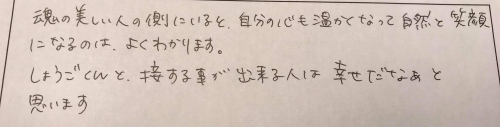 魂の美しい人の側にいると、自分の心も温かくなって自然と笑顔
になるのは、よくわかります。
しょうごくんと、接する事が出来る人は 幸せだなぁと
思います